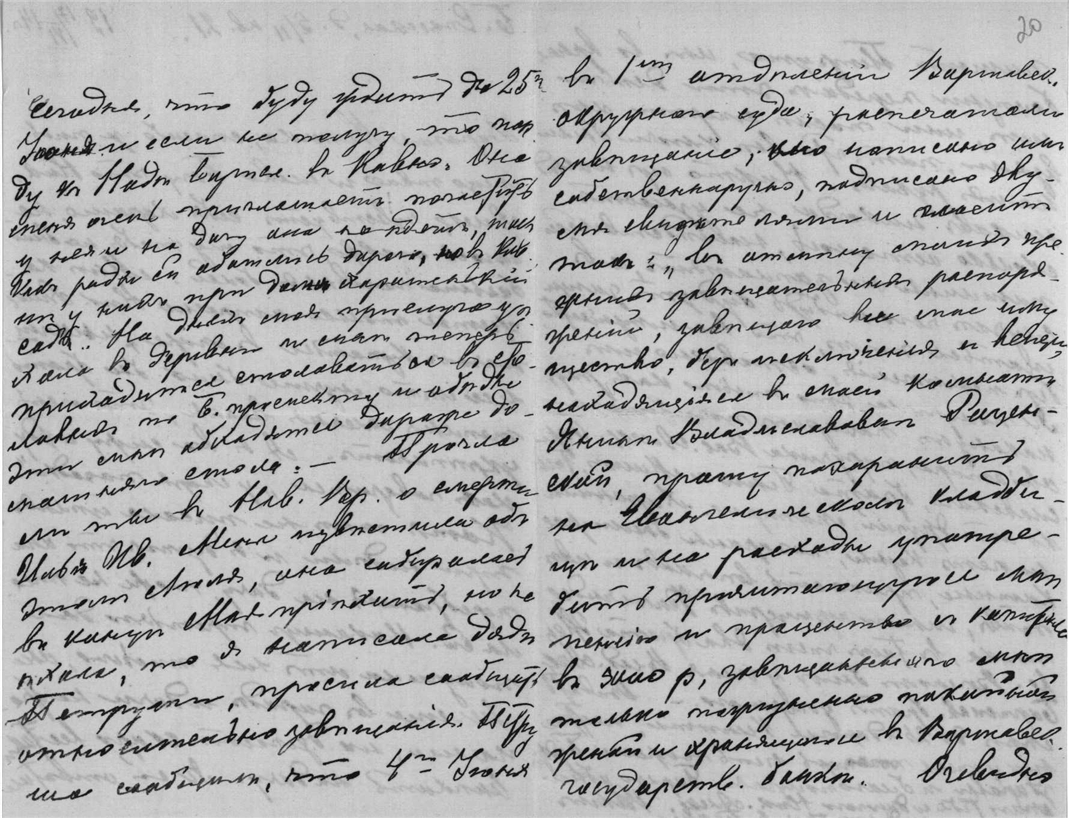 20
сегодня, что буду ждать до 25го
Іюня и если не получу, то пое
ду къ Надѣ въ Ковно. Она
меня очень приглашаетъ погостить
у нея и на дачу она не поѣдетъ, такъ
какъ роды ей обошлись дорого, но въ
ихъ при домѣ хорошенькій
садъ. На дняхъ моя прислуга уѣ
хала въ деревню и мнѣ теперь
приходится столоваться въ сто-
ловыхъ по Б. проспекту и обѣды
эти мнѣ обходятся дороже до-
машняго стола. — Прочла
ли ты въ Нов. Вр. о смерти
Ильи Ив. Меня извѣстила объ
этомъ Люля, она собиралась
въ концѣ Мая пріѣхать, но не
ѣхала, то я написала дядѣ
Петрусю, просила сообщить
относительно завѣщанія. Петру
ша сообщилъ, что 4го Іюня
въ 1мъ отдѣленіи Варшавск.
окружнаго суда, распечатали
завѣщаніе, оно написано имъ
собственноручно, подписано дву-
мя свидѣтелями и гласитъ
такъ: „въ отмѣну моихъ пре
жнихъ завѣщательныхъ распоря
женій, завѣщаю все мое иму
щество, безъ исключенія и вещи,
находящіяся въ моей комнатѣ
Яниной Владиславовной
ской, прошу похоронить
на Евангелическомъ кладби-
щѣ и на расходы употре-
бить причитающуюся мнѣ
пенсію и проценты съ капитала
въ 3000 р, завѣщаннаго мнѣ
только пожизненно покойной
женой и хранящагося въ Варшавск.
государств. банкѣ. Очевидно